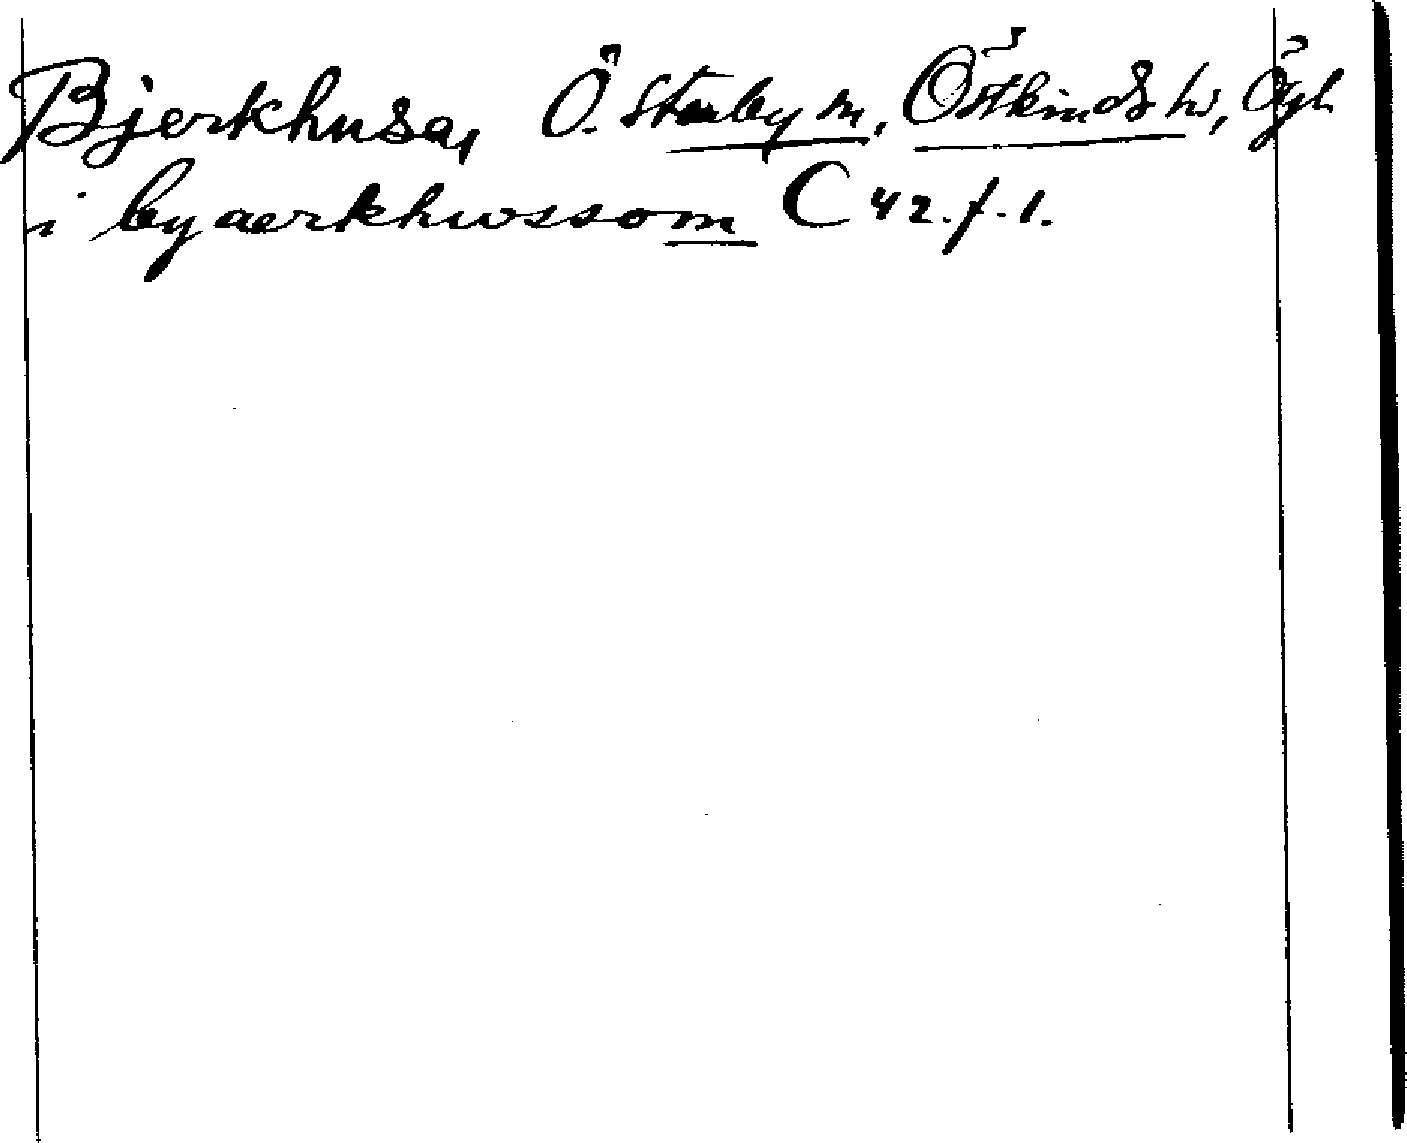 Bjerkhusa, Ö. Stenby sn, Östkinds hd, Ögl.
i byaerkhwssom C 42. f. 1.